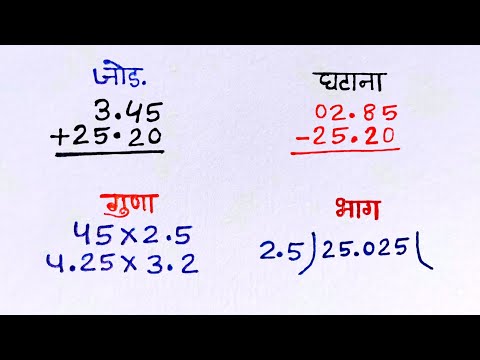 जोड.
3.45
+25.20
घटाना
02.85
-25.20
गुणा
45×2.5
4.25×3.2
भाग
2.5)25.025(